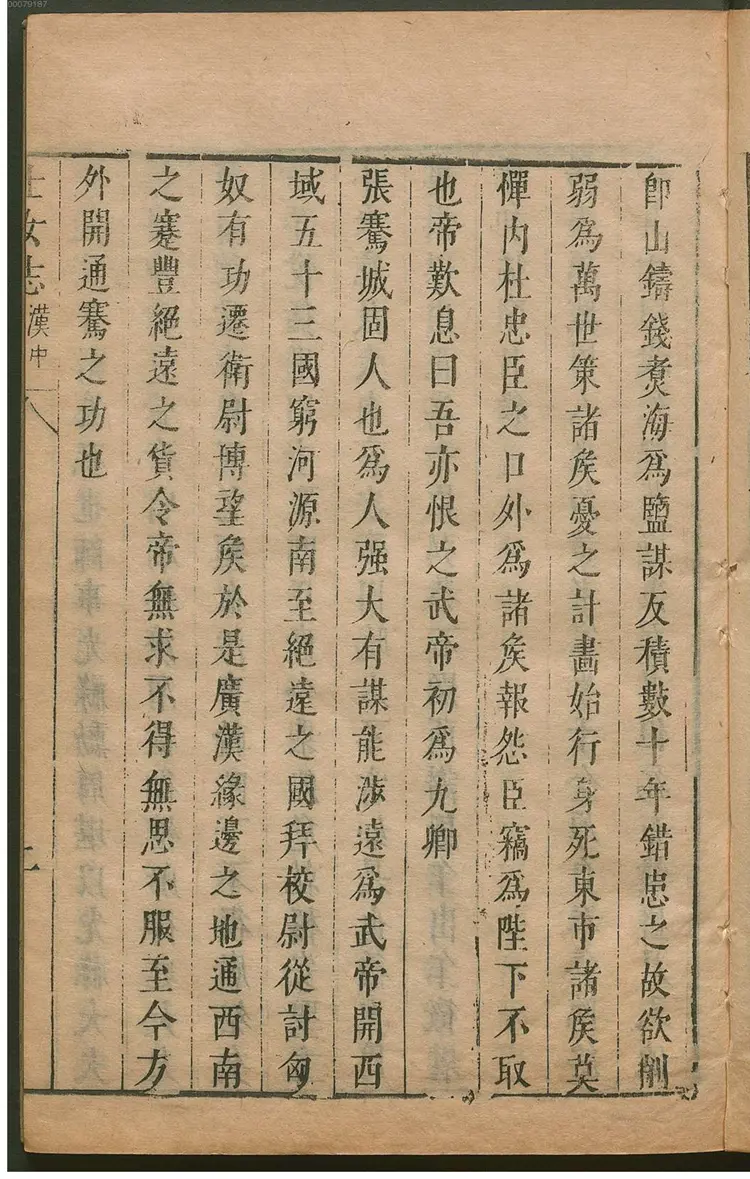 即山鑄錢煑海為鹽謀反積數十年錯患之故欲削
弱為萬世策諸矦憂之計畫始行身死東市諸矦莫
憚內杜忠臣之口外為諸矦報怨臣竊為陛下不取
也帝歎息曰吾亦恨之武帝初為九卿
張騫城固人也為人强大有謀能涉遠為武帝開西
域五十三國窮河源南至絕遠之國拜校尉從討匈
奴有功遷衛尉博望矦於是廣漢緣邊之地通西南
之蹇豐絕遠之貨令帝無求不得無思不服至今方
外開通騫之功也
士女志 漢中 八
00079187